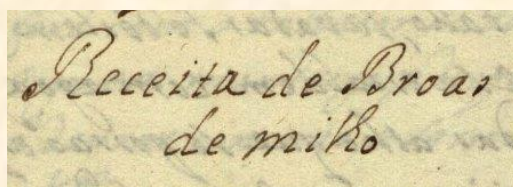 Receita de Broas
de milho